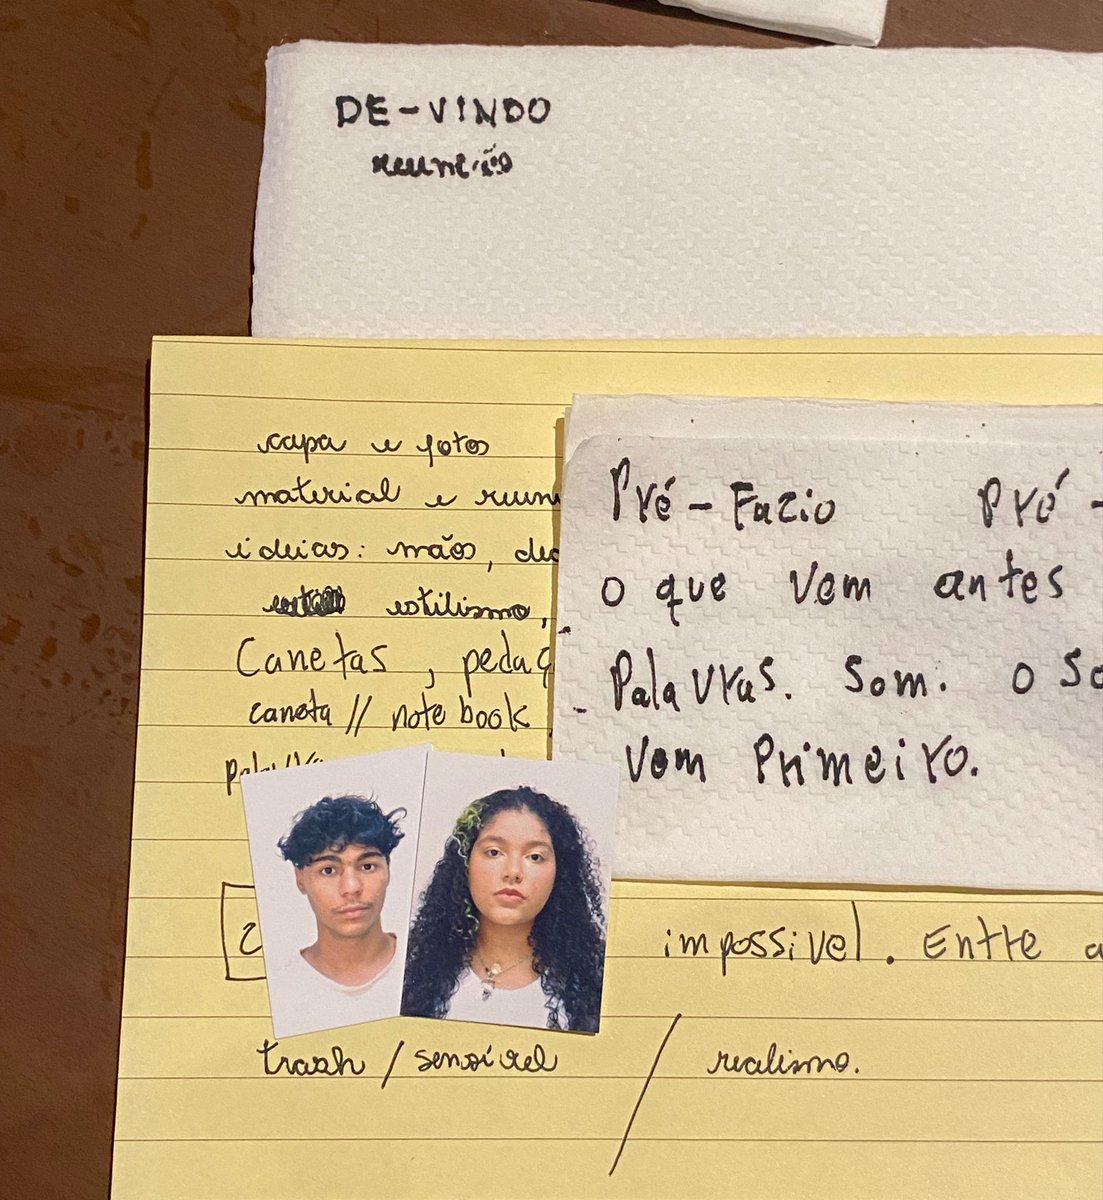 DE-VINDO
reunião
capa e fotos
material e reun
ideias: mãos, dec
estilismo,
Canetas, pedaç
caneta // notebook
palavra
Pré-Fazio Pré-
o que vem antes
Palavras. Som. o So
vem Primeiro.
2
impossível. Entre a
trash / sensível / realismo.